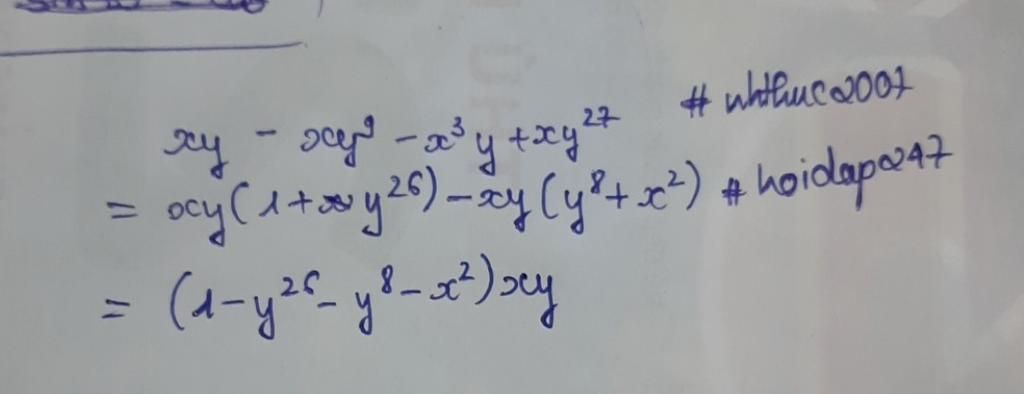 xy - xy⁹ - x³y + xy²⁷ # nhthuc2007
= xy(1+y²⁶) - xy(y⁸+x²) # hoidap247
= (1-y²⁶-y⁸-x²)xy